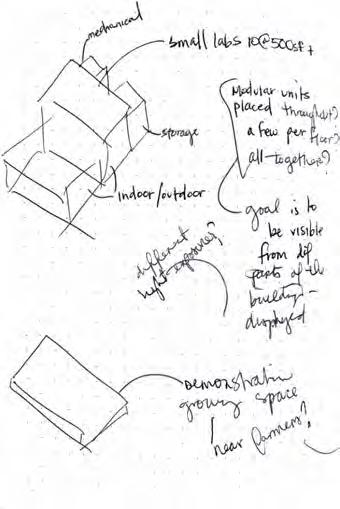 mechanical
small labs 10@500SF+
storage
indoor/outdoor
Modular units
placed throughout?
a few per floor?
all-together?
goal is to
be visible
from dif
parts of the
building -
displayed
different
light exposures?
Demonstration
growing space
near farmers?